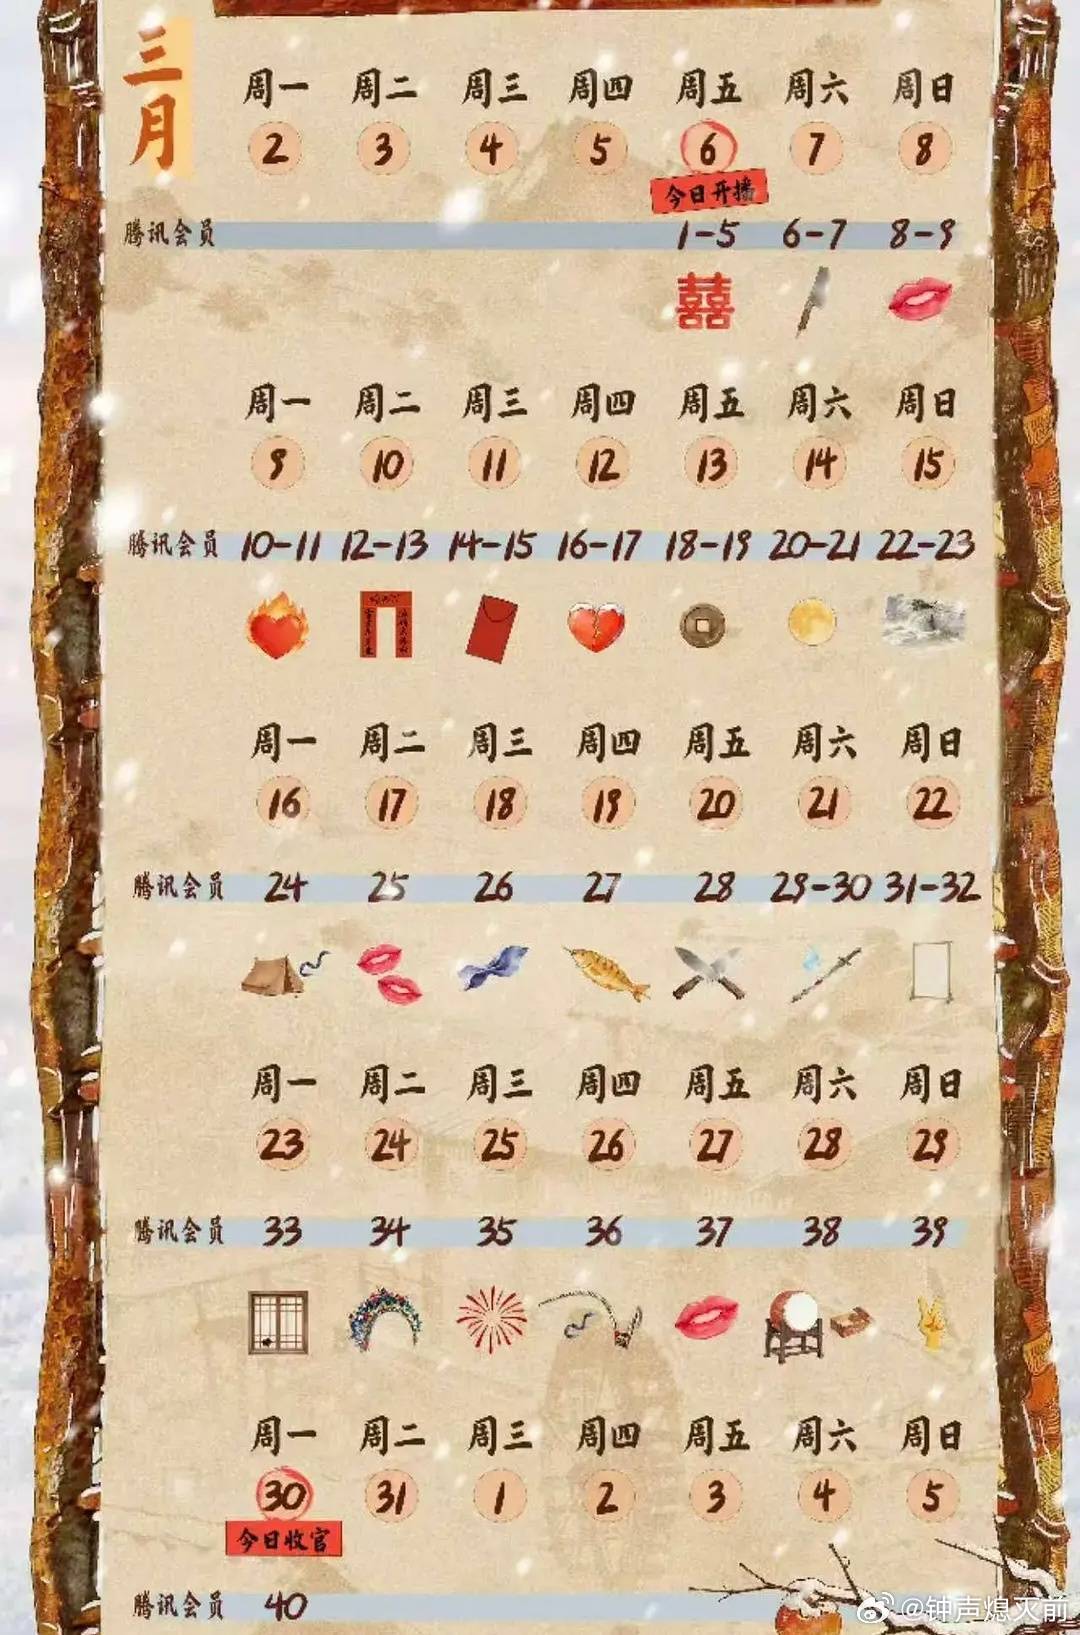 三月
周一 周二 周三 周四 周五 周六 周日
2 3 4 5 6 7 8
今日开播
腾讯会员 1-5 6-7 8-9
囍
周一 周二 周三 周四 周五 周六 周日
9 10 11 12 13 14 15
腾讯会员 10-11 12-13 14-15 16-17 18-19 20-21 22-23
周一 周二 周三 周四 周五 周六 周日
16 17 18 19 20 21 22
腾讯会员 24 25 26 27 28 29-30 31-32
周一 周二 周三 周四 周五 周六 周日
23 24 25 26 27 28 29
腾讯会员 33 34 35 36 37 38 39
周一 周二 周三 周四 周五 周六 周日
30 31 1 2 3 4 5
今日收官
腾讯会员 40
@钟声熄灭前